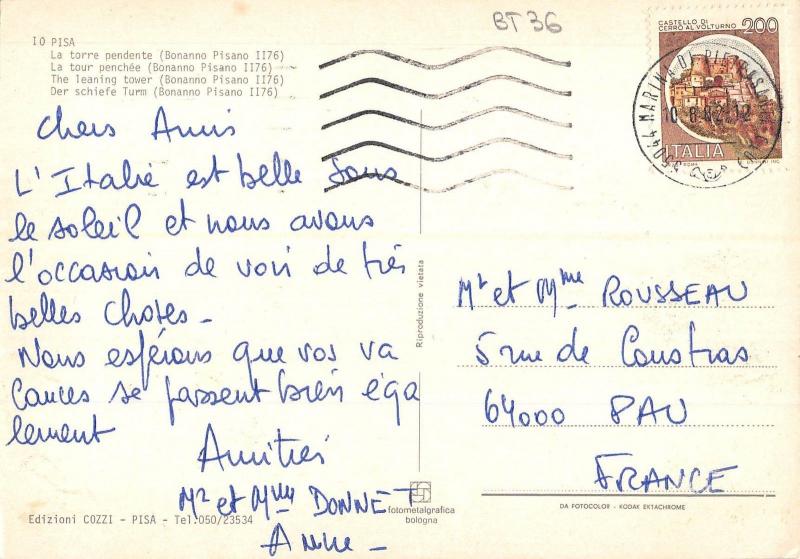 BT 36
10 PISA
La torre pendente (Bonanno Pisano II76)
La tour penchée (Bonanno Pisano II76)
The leaning tower (Bonanno Pisano II76)
Der schiefe Turm (Bonanno Pisano II76)
CASTELLO DI
CERRO AL VOLTURNO 200
ITALIA
10.8.82.12
Chers Amis
L'Italie est belle sous
le soleil et nous avons
l'occasion de voir de très
belles choses -
Nous espérons que vos va
cances se passent bien éga
lement
Amitiés
Mr et Mme DONNET
Anne -
Mr et Mme ROUSSEAU
5 rue de Coustras
64000 PAU
FRANCE
Riproduzione vietata
Edizioni COZZI - PISA - Tel.050/23534
fotometalgrafica
bologna
DA FOTOCOLOR - KODAK EKTACHROME